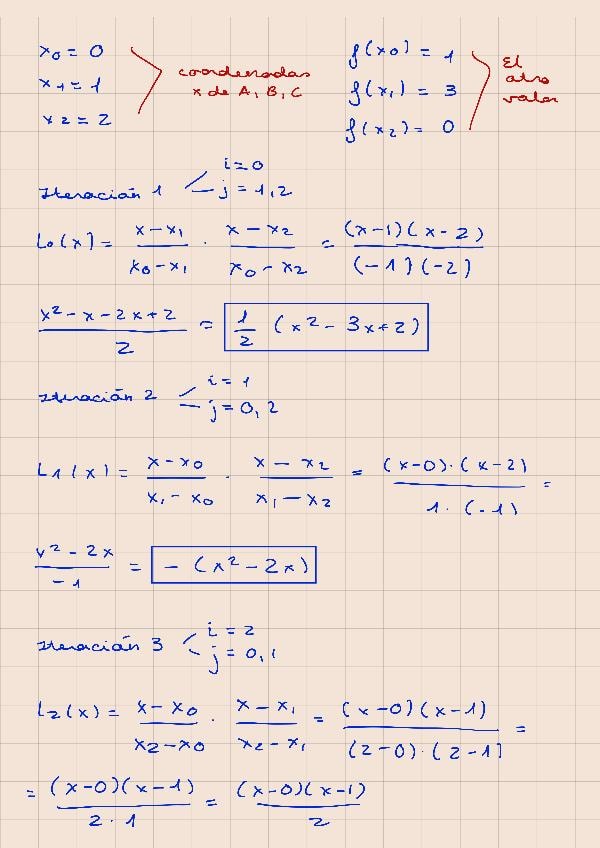 x0 = 0
x1 = 1
x2 = 2
coordenadas
x de A, B, C
f(x0) = 1
f(x1) = 3
f(x2) = 0
El
otro
valor
Iteración 1 i = 0
j = 1, 2
L0(x) = (x - x1)/(x0 - x1) · (x - x2)/(x0 - x2) = (x-1)(x-2)/(-1)(-2)
(x² - x - 2x + 2)/2 = 1/2 (x² - 3x + 2)
Iteración 2 i = 1
j = 0, 2
L1(x) = (x - x0)/(x1 - x0) · (x - x2)/(x1 - x2) = (x-0)·(x-2)/1·(-1) =
(x² - 2x)/-1 = - (x² - 2x)
Iteración 3 i = 2
j = 0, 1
L2(x) = (x - x0)/(x2 - x0) · (x - x1)/(x2 - x1) = (x-0)(x-1)/(2-0)·(2-1) =
= (x-0)(x-1)/2·1 = (x-0)(x-1)/2